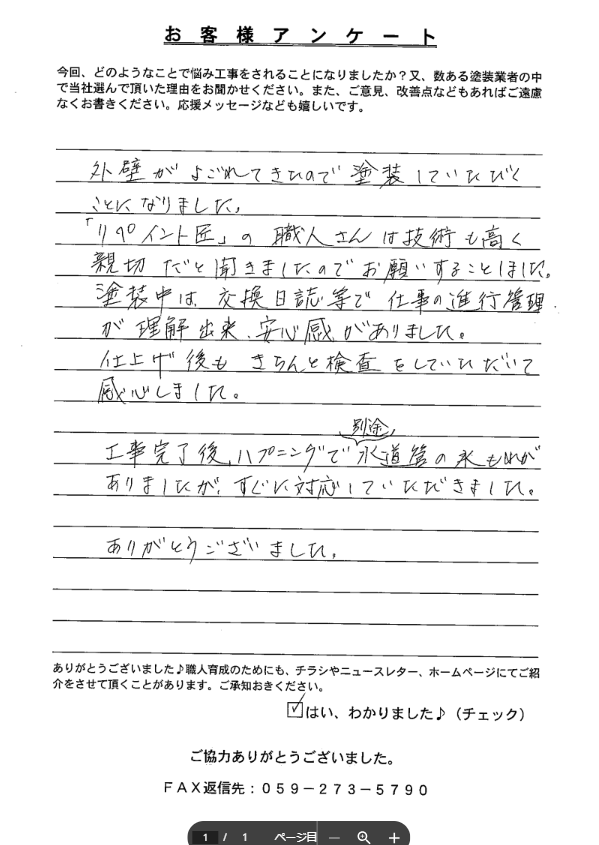 お客様アンケート
今回、どのようなことで悩み工事をされることになりましたか？又、数ある塗装業者の中
で当社選んで頂いた理由をお聞かせください。また、ご意見、改善点などもあればご遠慮
なくお書きください。応援メッセージなども嬉しいです。
外壁がよごれてきたので塗装していただく
ことになりました。
「リペイント匠」の職人さんは技術も高く
親切だと聞きましたのでお願いすることしました。
塗装中は交換日誌等で仕事の進行管理
が理解出来、安心感がありました。
仕上げ後もきちんと検査をしていただいて
感心しました。
別途
工事完了後、ハプニングで水道管の水もれが
ありましたが、すぐに対応していただきました。
ありがとうございました。
ありがとうございました♪職人育成のためにも、チラシやニュースレター、ホームページにてご紹
介をさせて頂くことがあります。ご承知おきください。
☑はい、わかりました♪（チェック）
ご協力ありがとうございました。
ＦＡＸ返信先：０５９－２７３－５７９０
1 / 1 ページ目 － ＋